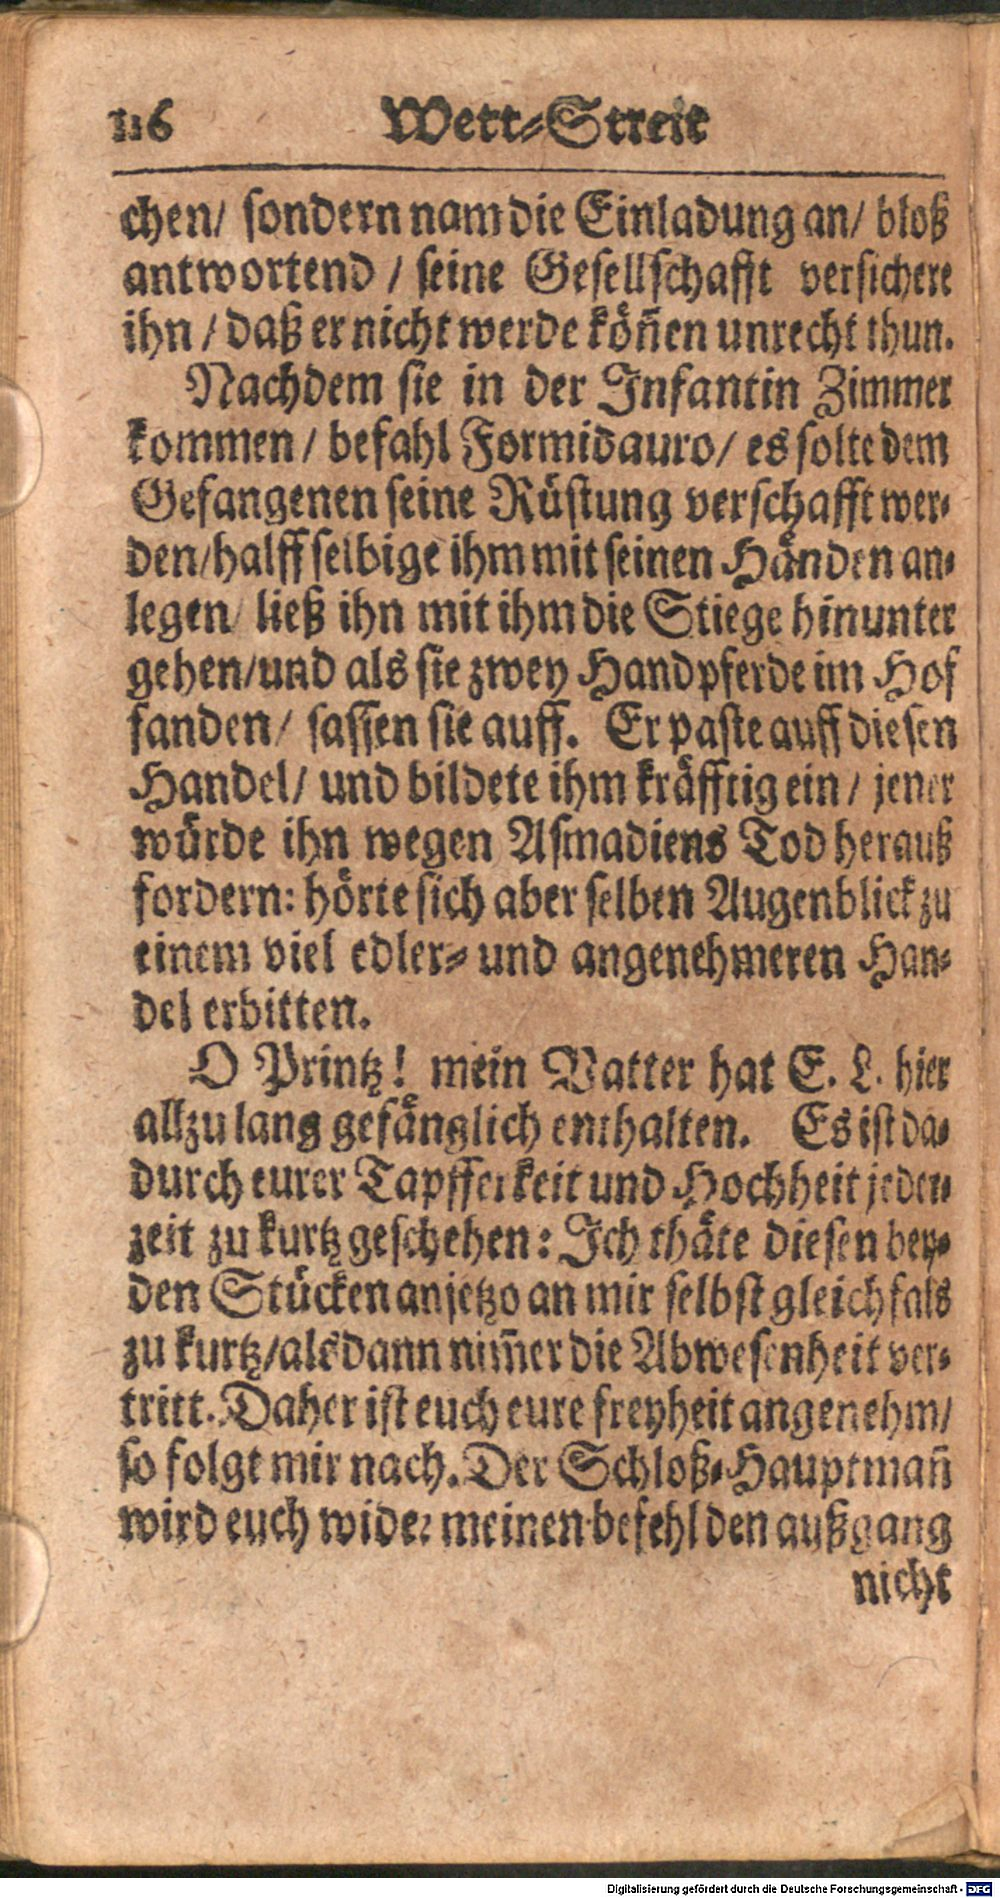 116 Wett-Streit
chen/ sondern nam die Einladung an/ bloß
antwortend / seine Gesellschafft versichere
ihn / daß er nicht werde köñen unrecht thun.
Nachdem sie in der Infantin Zimmer
kommen / befahl Formidauro/ es solte dem
Gefangenen seine Rüstung verschafft wer-
den/halff selbige ihm mit seinen Händen an-
legen/ ließ ihn mit ihm die Stiege hinunter
gehen/und als sie zwey Handpferde im Hof
fanden/ sassen sie auff. Er paste auff diesen
Handel/ und bildete ihm kräfftig ein / jener
würde ihn wegen Asmadiens Tod herauß
fordern: hörte sich aber selben Augenblick zu
einem viel edler- und angenehmeren Han-
del erbitten.
O Printz! mein Vatter hat E. L. hier
allzu lang gefänglich enthalten. Es ist da-
durch eurer Tapfferkeit und Hochheit jeder-
zeit zu kurtz geschehen: Ich thäte diesen bey-
den Stücken anjetzo an mir selbst gleichfals
zu kurtz/als dann nim̃er die Abwesenheit ver-
tritt. Daher ist euch eure freyheit angenehm/
so folgt mir nach. Der Schloß-Hauptmañ
wird euch wider meinen befehl den außgang
nicht
Digitalisierung gefördert durch die Deutsche Forschungsgemeinschaft - DFG